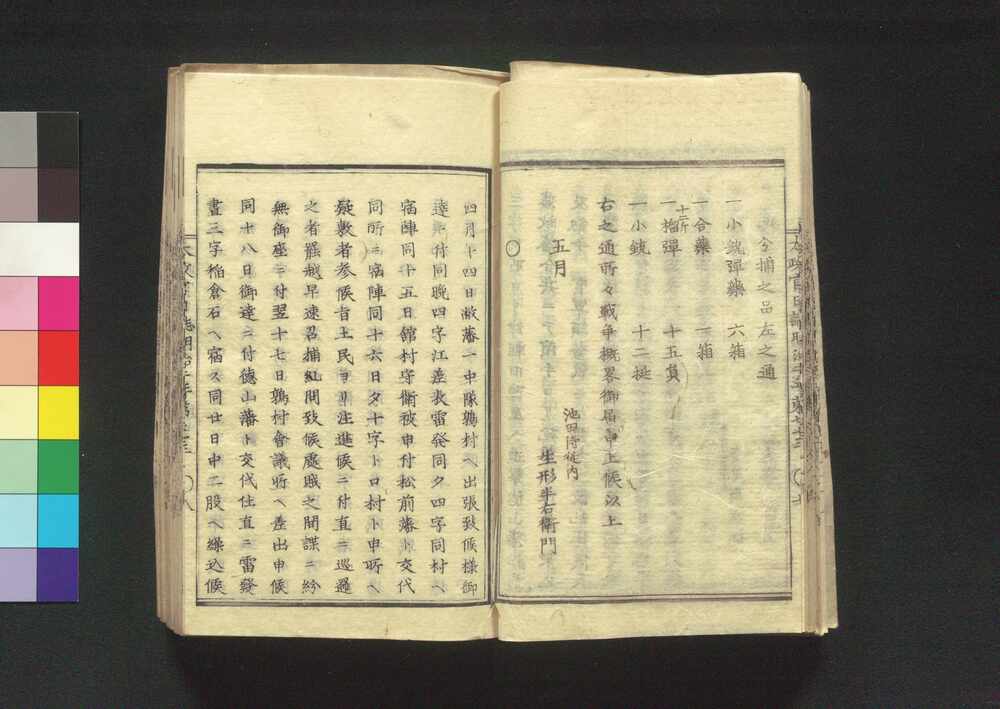 分捕之品左之通
一小銃彈藥 六箱
一合藥 一箱
十二斤
一榴彈 十五負
一小銃 十二挺
右之通所々戰爭概畧御届申上候以上
池田侍從内
五月 生形半右衛門
〇
四月十四日敝藩一中隊鶉村ヘ出張致候樣御
達ニ付同晩四字江差表雷發同夕四字同村ヘ
宿陣同十五日館村守衛被申付松前藩ト交代
同所ニ宿陣同十六日夕十字ト口村ト申所ヘ
疑敷者参候旨土民ヨリ注進候ニ付直ニ巡邏
之者罷越早速召捕糺問致候處賊之間諜ニ紛
無御座ニ付翌十七日鶉村會議所ヘ差出申候
同十八日御達ニ付德山藩ト交代仕直ニ雷發
晝三字稲倉石ヘ宿ス同廿日申二股ヘ繰込候